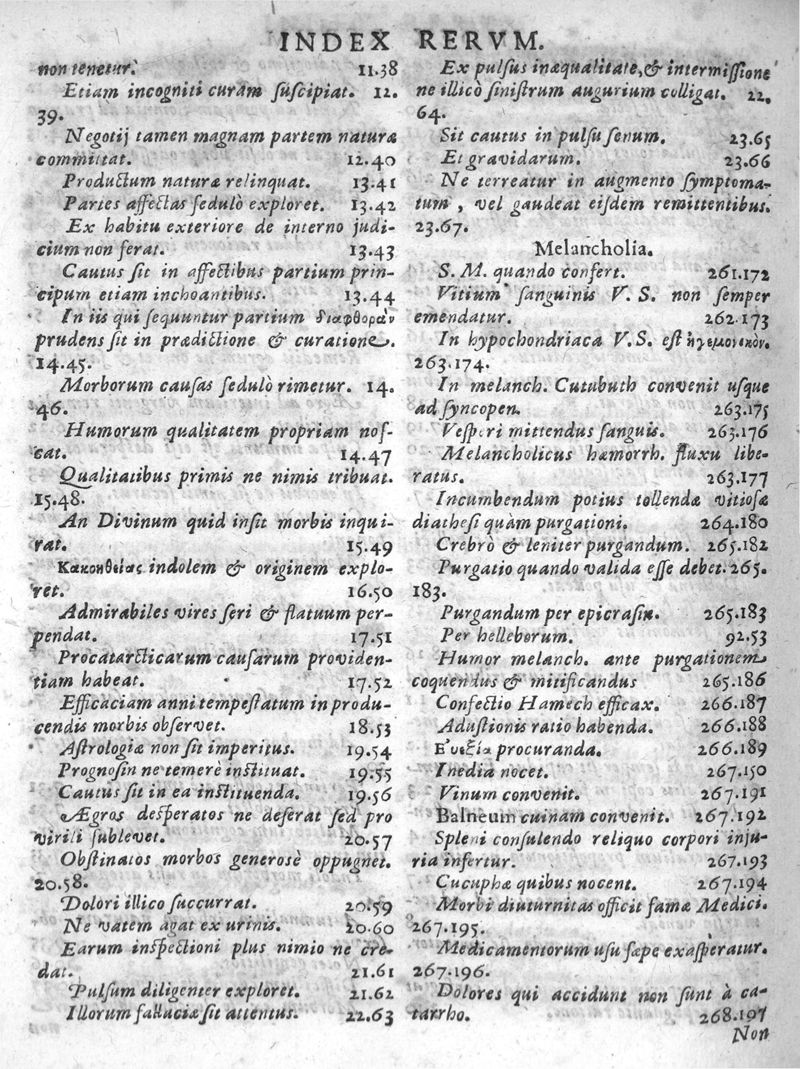 INDEX RERVM.
non tenetur. 11.38
Etiam incogniti curam ſuſcipiat. 12.
39.
Negotij tamen magnam partem naturæ
committat. 12.40
Productum naturæ relinquat. 13.41
Partes affectas ſedulò exploret. 13.42
Ex habitu exteriore de interno judi-
cium non ferat. 13.43
Cautus ſit in affectibus partium prin-
cipum etiam inchoantibus. 13.44
In iis qui ſequuntur partium διαφθορὰν
prudens ſit in prædictione & curatione.
14.45.
Morborum cauſas ſedulò rimetur. 14.
46.
Humorum qualitatem propriam noſ-
cat. 14.47
Qualitatibus primis ne nimis tribuat.
15.48.
An Divinum quid inſit morbis inqui-
rat. 15.49
Κακοηθείας indolem & originem explo-
ret. 16.50
Admirabiles vires ſeri & flatuum per-
pendat. 17.51
Procatarcticarum cauſarum providen-
tiam habeat. 17.52
Efficaciam anni tempeſtatum in produ-
cendis morbis obſervet. 18.53
Aſtrologiæ non ſit imperitus. 19.54
Prognoſin ne temerè inſtituat. 19.55
Cautus ſit in ea inſtituenda. 19.56
Ægros deſperatos ne deſerat ſed pro
virili ſublevet. 20.57
Obſtinatos morbos generosè oppugnet.
20.58.
Dolori illico ſuccurrat. 20.59
Ne vatem agat ex urinis. 20.60
Earum inſpectioni plus nimio ne cre-
dat. 21.61
Pulſum diligenter exploret. 21.62
Illorum fallaciæ ſit attentus. 22.63
Ex pulſus inæqualitate, & intermiſſione
ne illicò ſiniſtrum augurium colligat. 22.
64.
Sit cautus in pulſu ſenum. 23.65
Et gravidarum. 23.66
Ne terreatur in augmento ſymptoma-
tum, vel gaudeat eiſdem remittentibus.
23.67.
Melancholia.
S. M. quando confert. 261.172
Vitium ſanguinis V. S. non ſemper
emendatur. 262.173
In hypochondriaca V. S. eſt ἡγεμονικόν.
263.174.
In melanch. Cutubuth convenit uſque
ad ſyncopen. 263.175
Veſperi mittendus ſanguis. 263.176
Melancholicus hæmorrh. fluxu libe-
ratus. 263.177
Incumbendum potius tollendæ vitioſæ
diatheſi quàm purgationi. 264.180
Crebrò & leniter purgandum. 265.182
Purgatio quando valida eſſe debet. 265.
183.
Purgandum per epicraſin. 265.183
Per helleborum. 92.53
Humor melanch. ante purgationem
coquendus & mitificandus 265.186
Confectio Hamech efficax. 266.187
Aduſtionis ratio habenda. 266.188
Εὐεξία procuranda. 266.189
Inedia nocet. 267.150
Vinum convenit. 267.191
Balneum cuinam convenit. 267.192
Spleni conſulendo reliquo corpori inju-
ria infertur. 267.193
Cucuphæ quibus nocent. 267.194
Morbi diuturnitas officit famæ Medici.
267.195.
Medicamentorum uſu ſæpe exaſperatur.
267.196.
Dolores qui accidunt non ſunt à ca-
tarrho. 268.197
Non